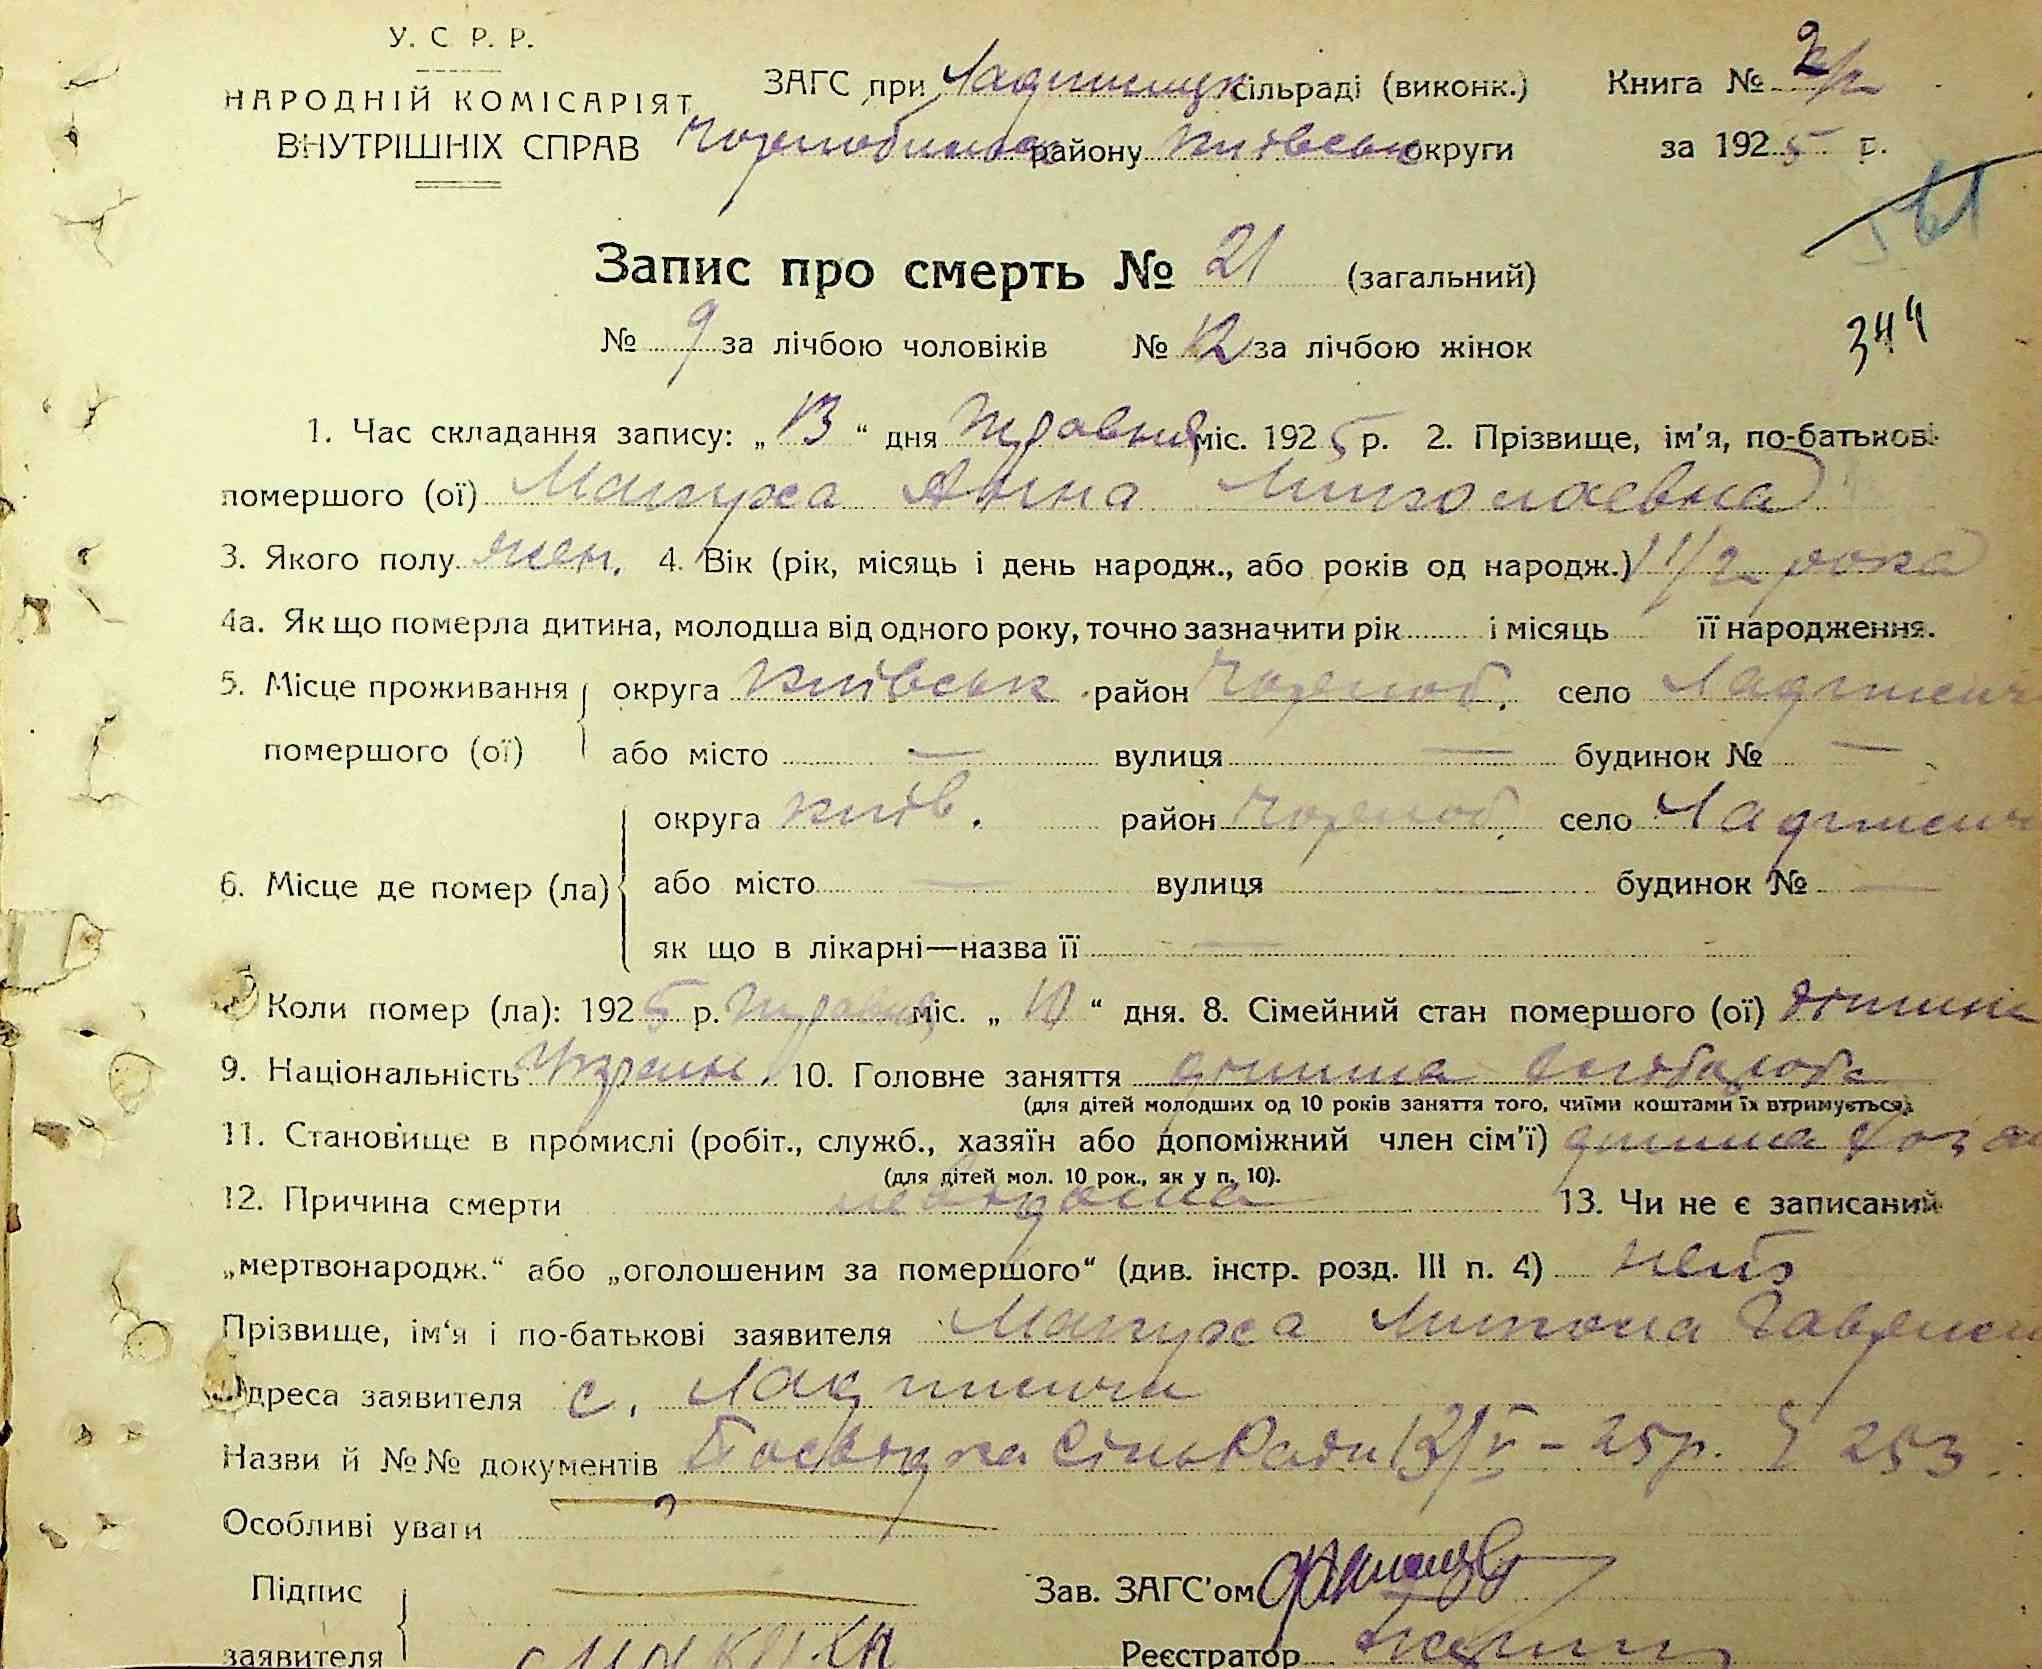 У. С Р. Р.
НАРОДНІЙ КОМІСАРІЯТ
ВНУТРІШНІХ СПРАВ
ЗАГС при Ладижицьк сільраді (виконк.) Книга № 2
Чорнобильськ району Київськ округи за 1925 г.
561
Запис про смерть № 21 (загальний)
344
№ 9 за лічбою чоловіків № 12 за лічбою жінок
1. Час складання запису: „13“ дня Травня міс. 1925 р. 2. Прізвище, ім'я, по-батькові
помершого (ої) Макуха Анна Миколаевна
3. Якого полу жен. 4. Вік (рік, місяць і день народж., або років од народж.) 1 1/2 рока
4а. Як що померла дитина, молодша від одного року, точно зазначити рік і місяць її народження.
5. Місце проживання помершого (ої) округа Київськ район Чорноб. село Ладижич
або місто — вулиця — будинок № —
6. Місце де помер (ла) округа Київ. район Чорноб. село Ладижич
або місто — вулиця — будинок № —
як що в лікарні—назва її —
Коли помер (ла): 1925 р. Травня міс. „10“ дня. 8. Сімейний стан помершого (ої) дитина
9. Національність Україн. 10. Головне заняття дитина хлібороба
(для дітей молодших од 10 років заняття того, чиїми коштами їх втримується).
11. Становище в промислі (робіт., служб., хазяїн або допоміжний член сім'ї) дитина хозя
(для дітей мол. 10 рок., як у п. 10).
12. Причина смерти невідома 13. Чи не є записаний
„мертвонародж.“ або „оголошеним за помершого“ (див. інстр. розд. III п. 4) нет
Прізвище, ім‘я і по-батькові заявителя Макуха Микола
Адреса заявителя с. Ладижичи
Назви й №№ документів Посвідка СільРади 12/V – 25 р. § 253.
Особливі уваги
Підпис
заявителя Макуха
Зав. ЗАГС'ом
Реєстратор